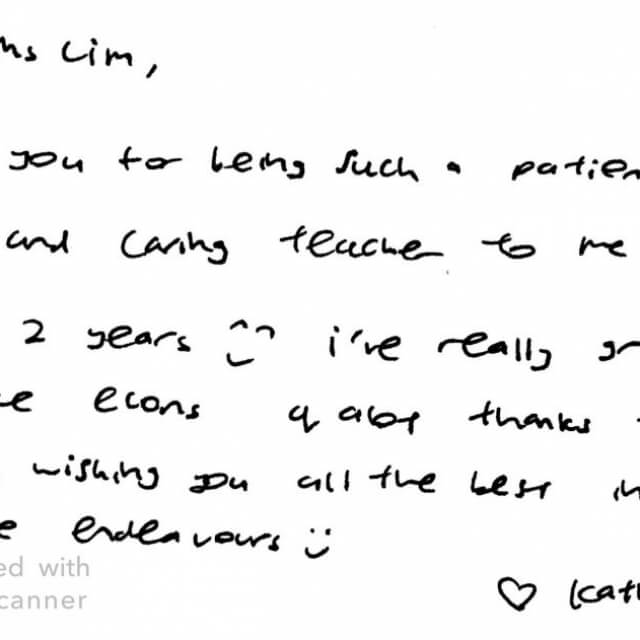 ms Lim,
you for being such a patien
and caring teacher to me
2 years ^^ i've really gr
e econs q alot thanks
wishing you all the best in
e endeavours :)
ed with
canner
♡ kat